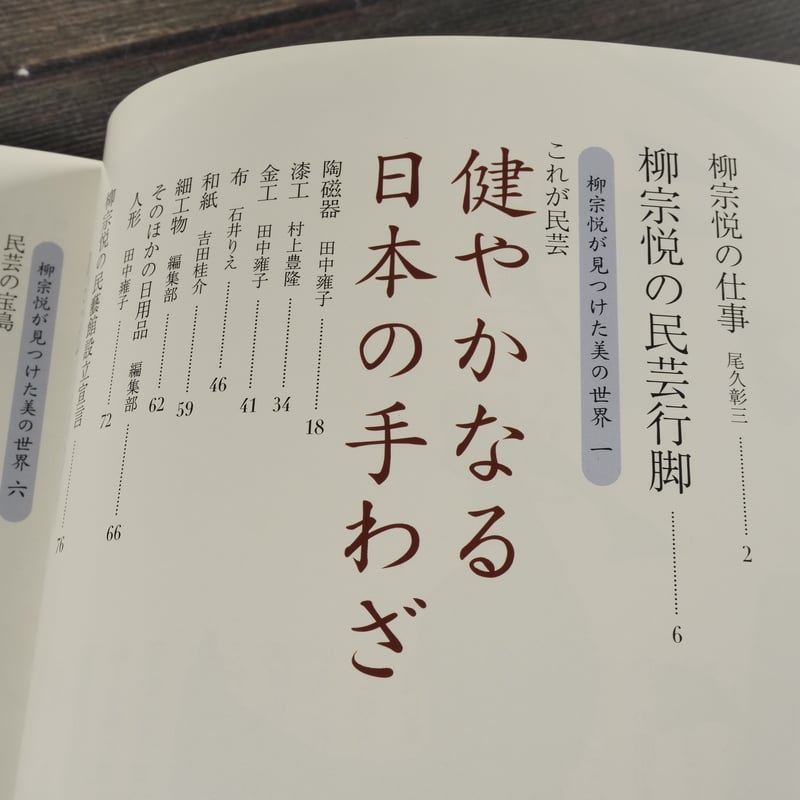 柳宗悦の仕事 尾久彰三 ………… 2
柳宗悦の民芸行脚 ………… 6
柳宗悦が見つけた美の世界 一
これが民芸
健やかなる
日本の手わざ
陶磁器 田中雍子 ………… 18
漆工 村上豊隆 ………… 34
金工 田中雍子 ………… 41
布 石井りえ ………… 46
和紙 吉田桂介 ………… 59
細工物 編集部 ………… 62
そのほかの日用品 編集部 ………… 66
人形 田中雍子 ………… 72
柳宗悦の民藝館設立宣言 ………… 76
柳宗悦が見つけた美の世界 六
民芸の宝島